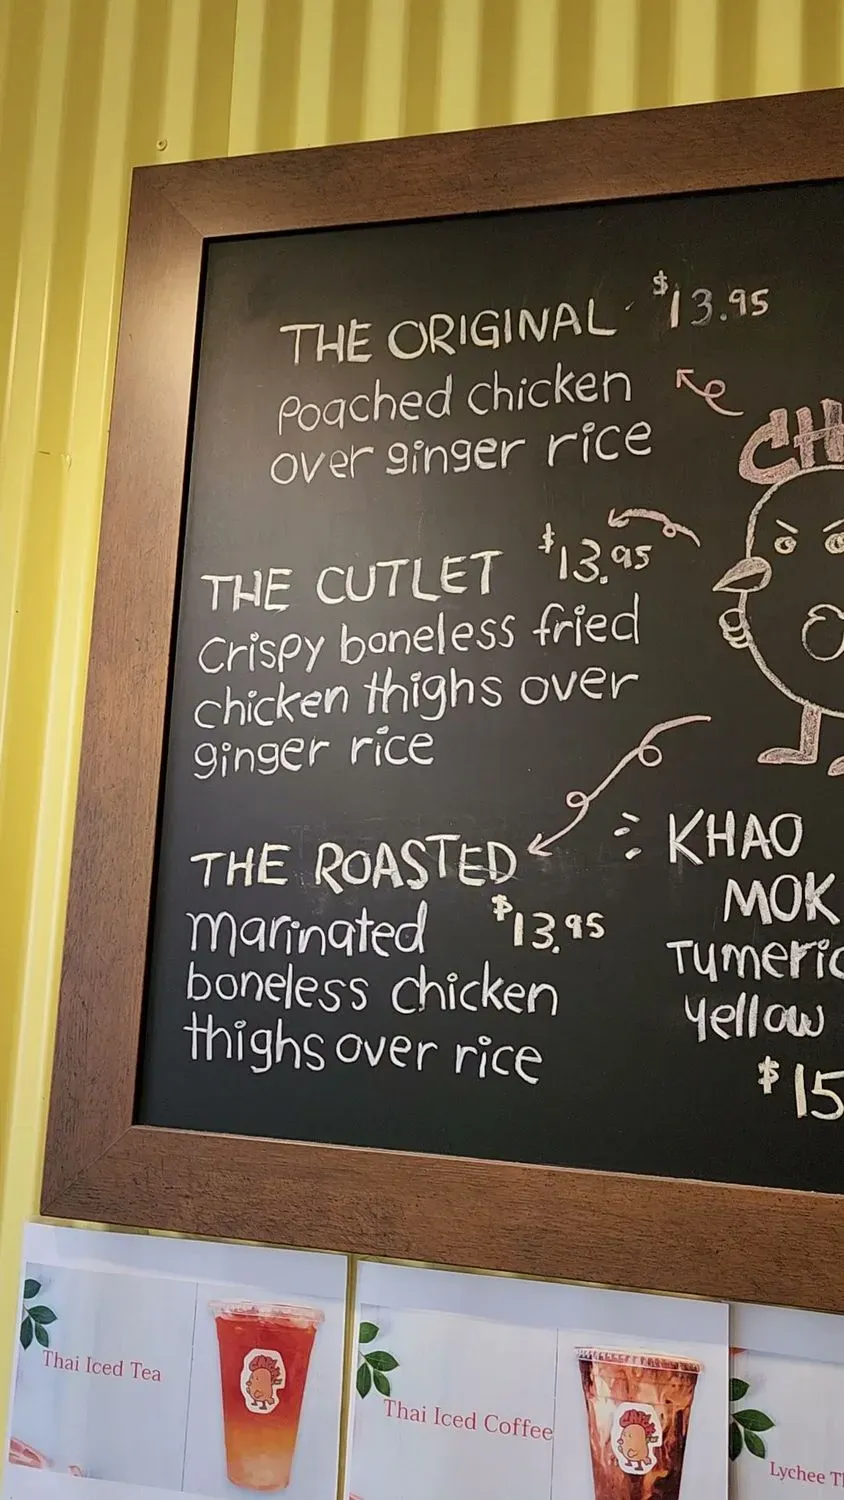 THE ORIGINAL $13.95
Poached chicken
over ginger rice
CH
THE CUTLET $13.95
Crispy boneless fried
chicken thighs over
ginger rice
THE ROASTED
marinated $13.95
boneless chicken
thighs over rice
KHAO
MOK
Tumeric
yellow
$15
Thai Iced Tea
Thai Iced Coffee
Lychee